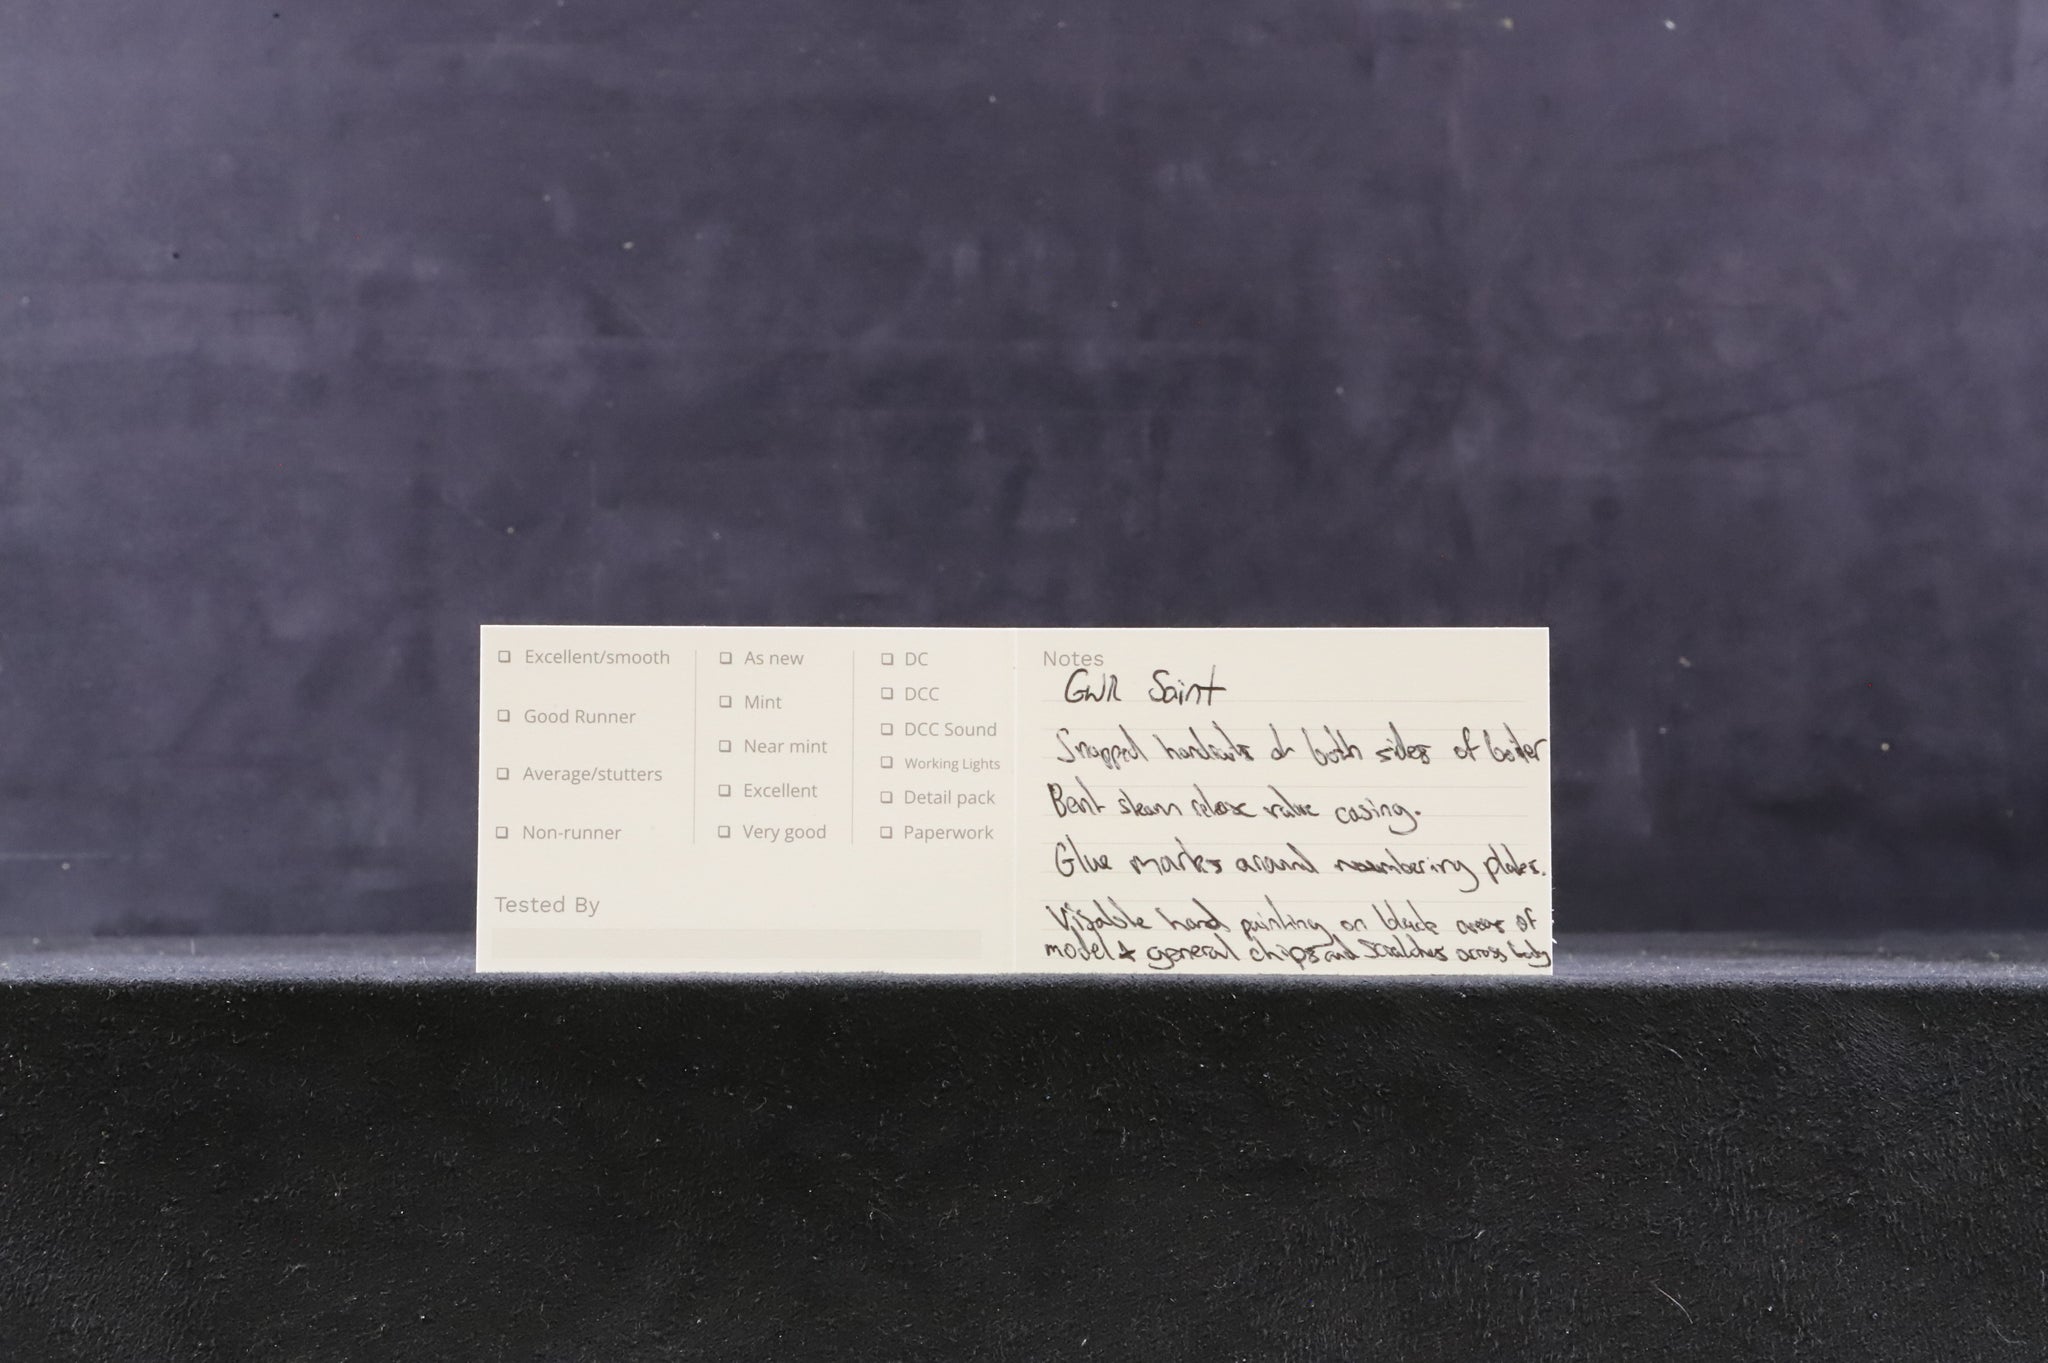 Excellent/smooth
Good Runner
Average/stutters
Non-runner
As new
Mint
Near mint
Excellent
Very good
DC
DCC
DCC Sound
Working Lights
Detail pack
Paperwork
Tested By
Notes
GWR Saint
Snapped handrails on both sides of boiler
Bent steam release valve casing.
Glue marks around numbering plates.
Visable hand painting on black areas of
model & general chips and scratches across body